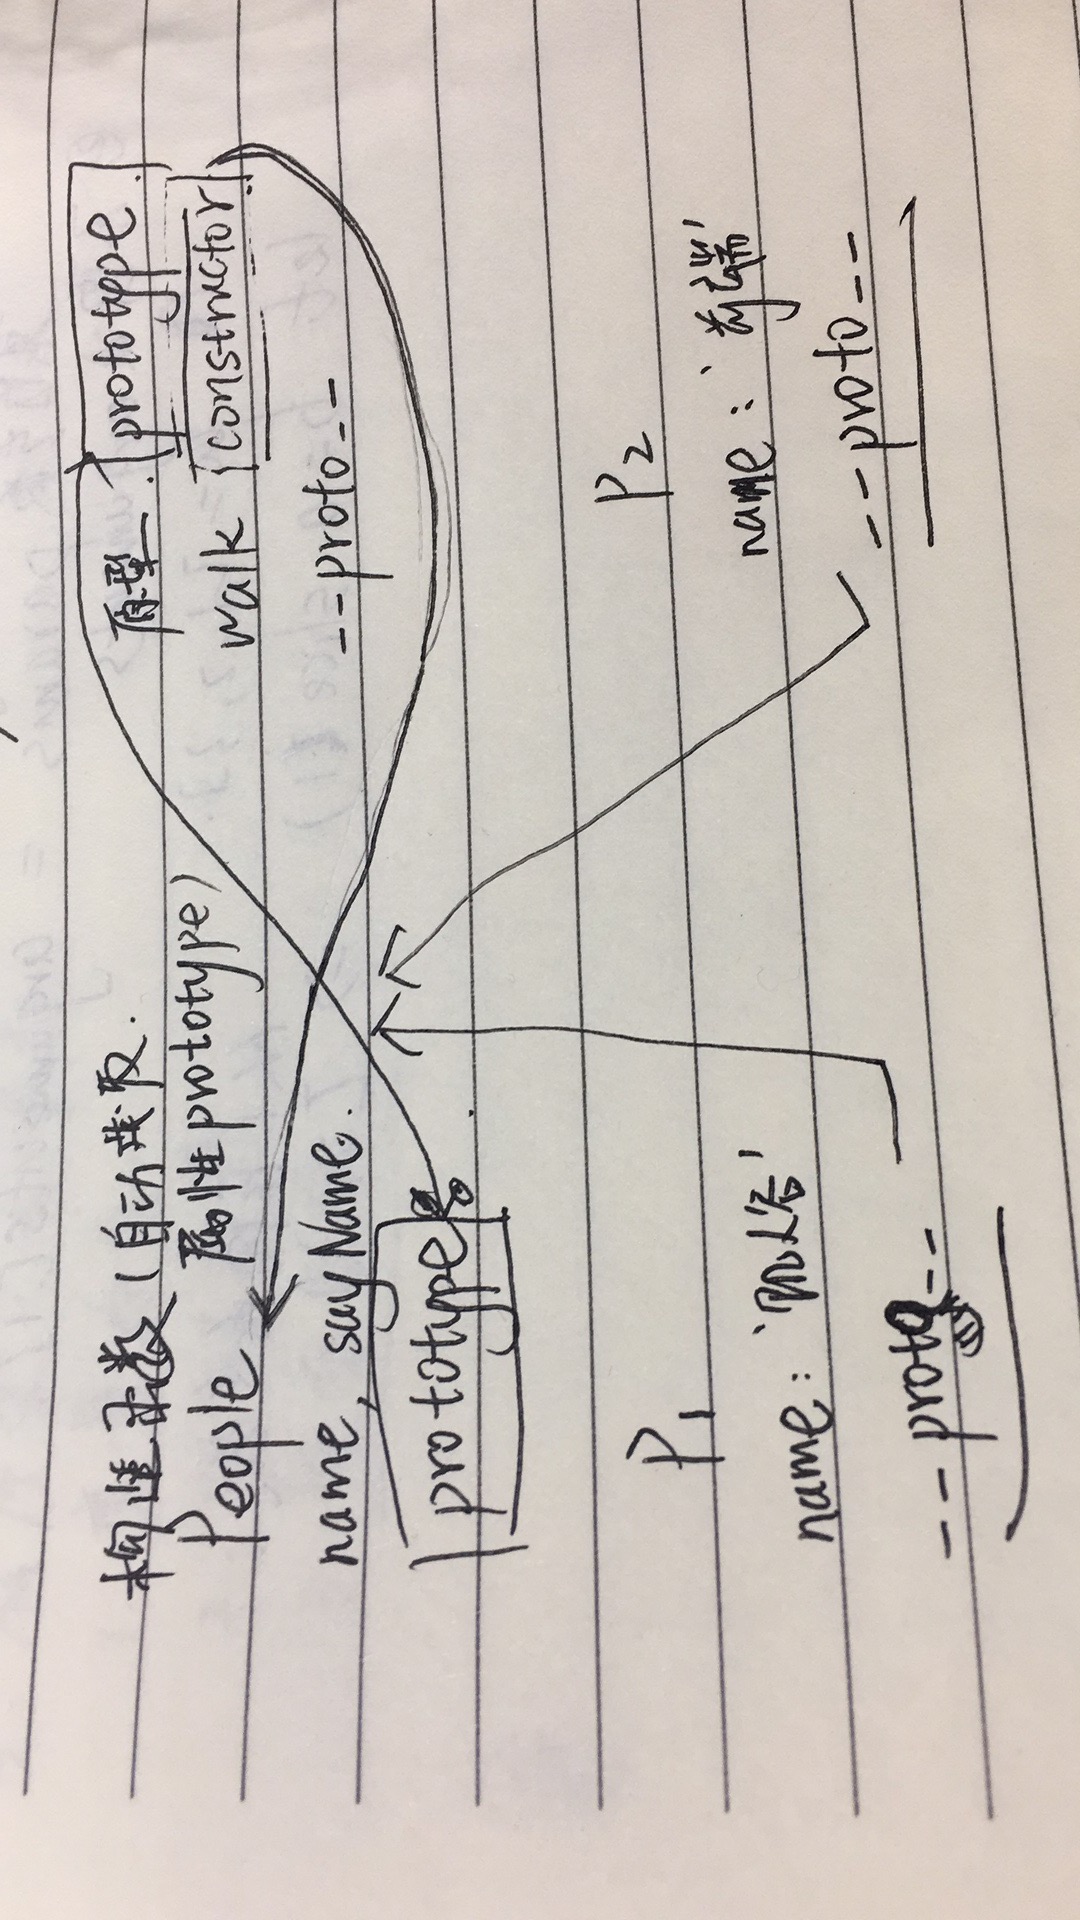 构造函数(自动获取
属性prototype)
People
name, sayName.
prototype
原型 prototype
walk constructor
--proto--
P1
name: '
--proto--
P2
name: '前端'
--proto--